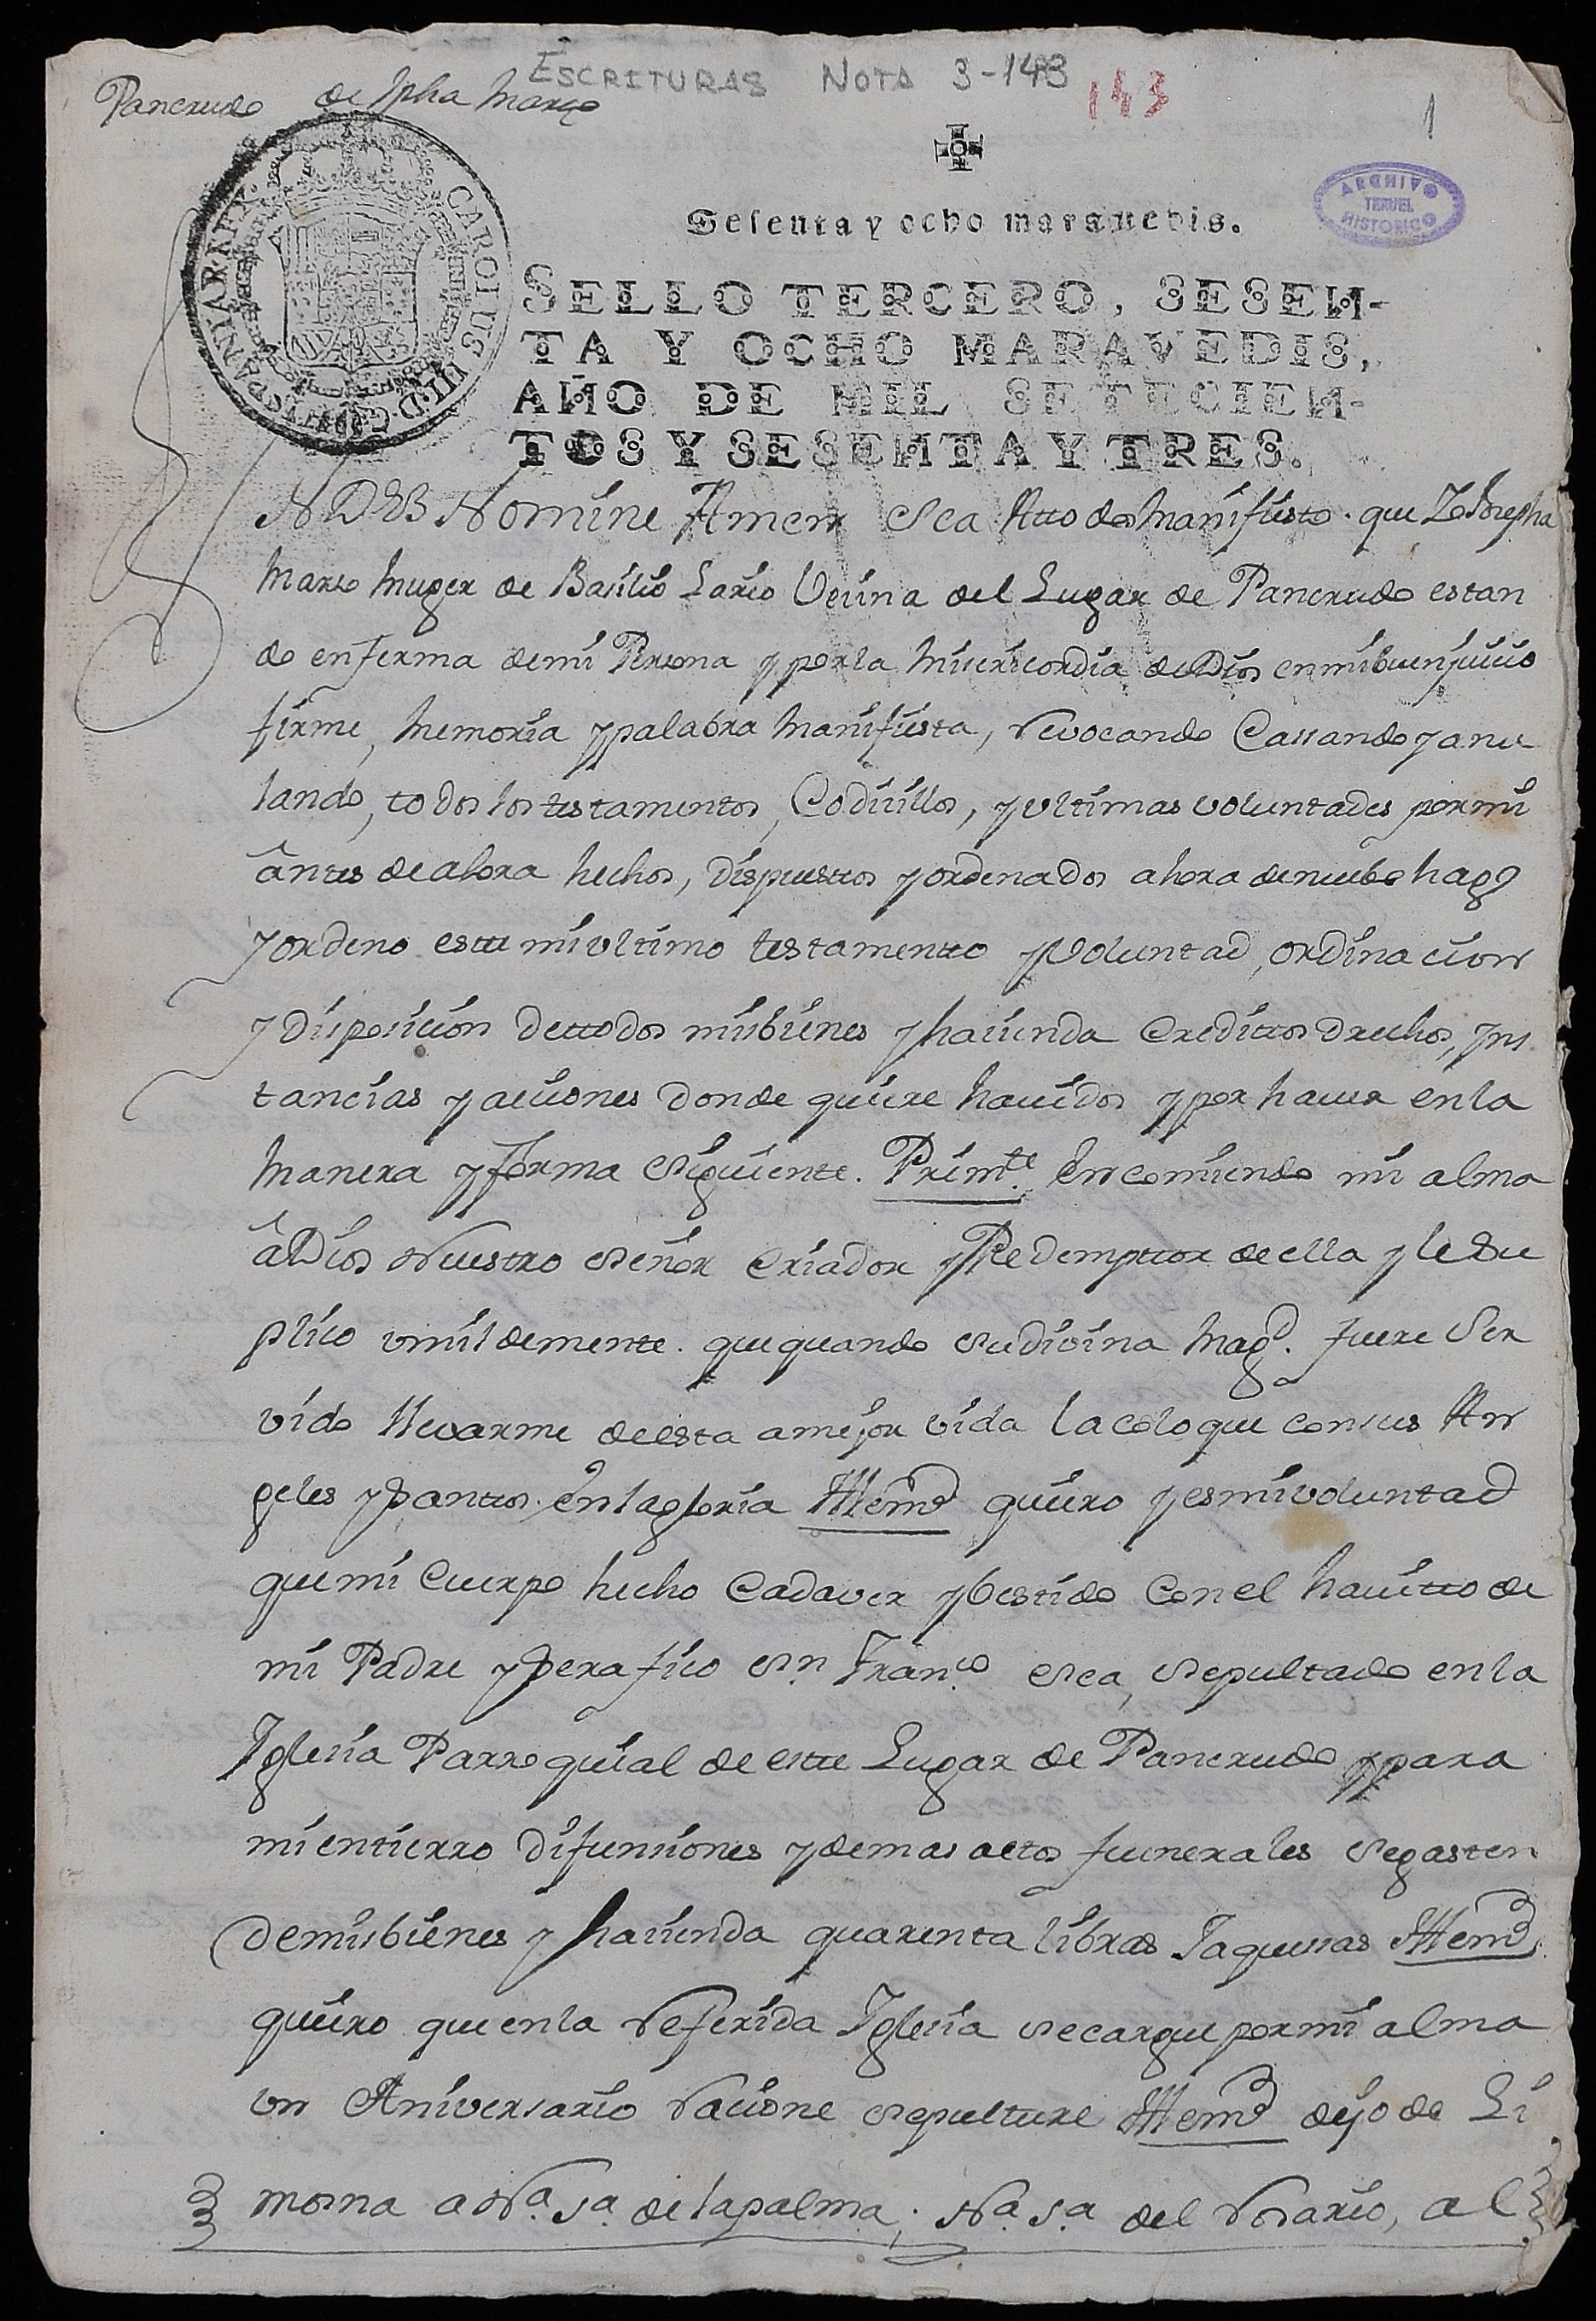 ESCRITURAS NOTA 3-143
143
Pancrudo de Jpha Marco
1
ARCHIVO
TERUEL
HISTORICO
CAROLUS III. D. G. HISPANIAR. REX
Sesenta y ocho maravedis.
SELLO TERCERO, SESEN-
TA Y OCHO MARAVEDIS,
AÑO DE MIL SETECIEN-
TOS Y SESENTA Y TRES.
N DEI Nomine Amen Sea Atto de Manifiesto que Yo Josepha
Marco Muger de Basilio Lario Vecina del Lugar de Pancrudo estan
do enferma de mi Persona y por la Misericordia de Dios en mi buen juicio
firme, Memoria y palabra Manifiesta, revocando Cassando y anu
lando, todos los testamentos, Codicillos, y ultimas voluntades por mi
ântes de ahora hechos, dispuestos y ordenados ahora de nuebo hago
y ordeno este mi ultimo testamento y Voluntad, ordinacion
y disposicion de ttodos mis bienes y hacienda Creditos drechos, Yns
tancias y acciones donde quiere havidos y por haver en la
Manera y forma Siguiente. Primte. Encomiendo mi alma
â Dios Nuestro Señor Criador y Redemptor de ella y le Su
plico umildemente. que quando su divina Magd. fuere Ser
vido llevarme de esta a mejor vida la coloque con sus An
geles y Santos. en la gloria Ittem quiero y es mi voluntad
que mi Cuerpo hecho Cadaver y Vestido Con el havitto de
mi Padre y Serafico Sn. Franco. Sea, Sepultado en la
Iglesia Parroquial de este Lugar de Pancrudo y para
mi entierro difunsiones y demas actos funerales Se gasten
de mis bienes y hacienda quarenta libras Jaquesas Ittem
quiero que en la referida Iglesia se cargue por mi alma
un Aniversario racione sepulture Ittem dejo de Li
mosna a Na. Sa. de la palma, Na. Sa. del Rosario, al